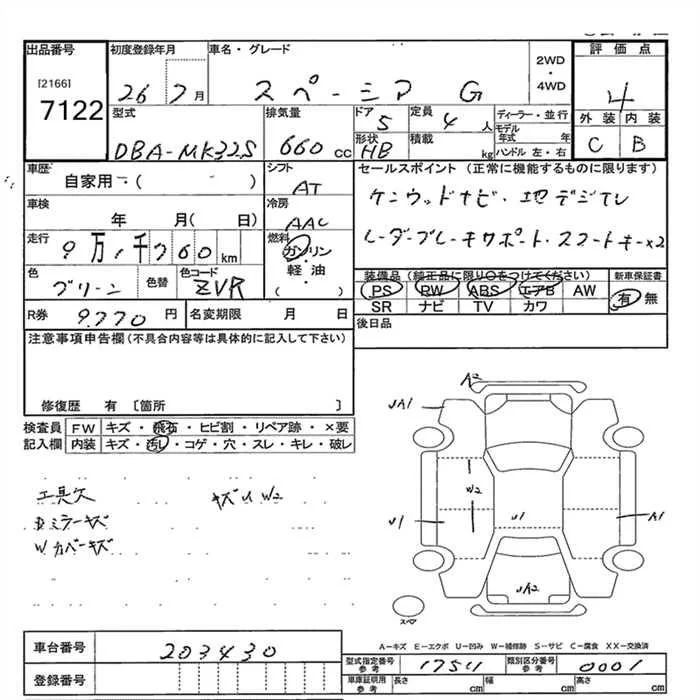 出品番号 初度登録年月 車名・グレード 2WD・4WD 評価点
[2166]
7122 26 7月 スペーシア G 4
型式 排気量 ドア 定員 ディーラー・並行 外装 内装
DBA-MK32S 660 cc 5 4人 モデル年式 年 C B
形状 積載 ハンドル 左・右
HB kg
車歴 シフト セールスポイント (正常に機能するものに限ります)
自家用・( ) AT ケンウッドナビ・地デジTV
車検 冷房 レーダーブレーキサポート・スマートキーx2
年 月( 日) AAC
走行 燃料
9万1千760km ガソリン・軽油・( )
色 色替 色コード 装備品 (純正品に限り○をつけてください) 新車保証書
グリーン ZVR PS PW ABS エアB AW 有 無
SR ナビ TV カワ
R券 9,770円 名変期限 月 日 後日品
注意事項申告欄(不具合内容等は具体的に記入して下さい)
修復歴 有 [箇所 ]
検査員 FW キズ・飛石・ヒビ割・リペア跡・×要
記入欄 内装 キズ・汚レ・コゲ・穴・スレ・キレ・破レ
工具欠 キズU W2
Rミラーキズ
Wカバーキズ
A2
UA1
W2
U1 U1 A1
UA2
スペア
A-キズ E-エクボ U-凹み W-補修跡 S-サビ C-腐食 XX-交換済
車台番号 203430
型式指定番号 参考 17511 類別区分番号 参考 0001
登録番号
車庫証明用 参考 長さ cm 幅 cm 高さ cm